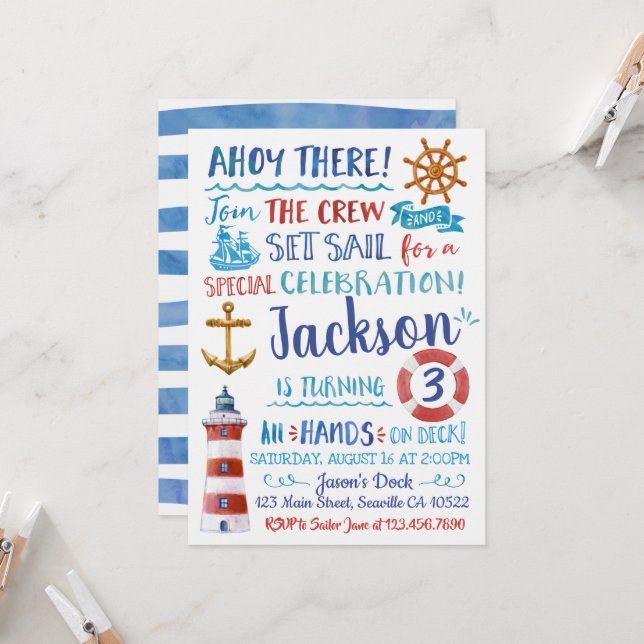 AHOY THERE!
Join THE CREW AND
SET SAIL for a
SPECIAL CELEBRATION!
Jackson
IS TURNING 3
All HANDS ON DECK!
SATURDAY, AUGUST 16 AT 2:00PM
Jason's Dock
123 Main Street, Seaville CA 10522
RSVP to Sailor Jane at 123.456.7890